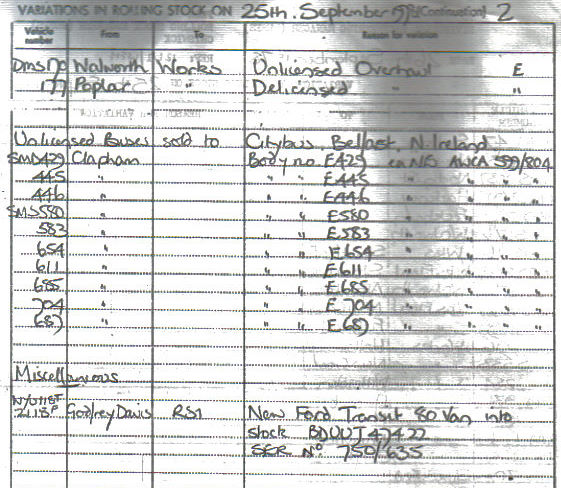 VARIATIONS IN ROLLING STOCK ON 25th. September (Continuation) 2
Vehicle number From To Reason for variation
Dms Walworth Works Unlicensed Overhaul E
Poplar " Delicensed " "
Unlicensed Buses sold to Citybus, Belfast, N. Ireland
SMD429 Clapham Body no. E429 AWCA 599/804
445 " " " E445 " " "
446 " " " E446 " " "
SMS580 " " " E580 " " "
583 " " " E583 " " "
654 " " " E654 " " "
611 " " " E611 " " "
685 " " " E685 " " "
704 " " " E704 " " "
687 " " " E687 " " "
Miscellaneous
Godfrey Davis RS1 New Ford Transit 80 Van into
stock
SER No 750/635